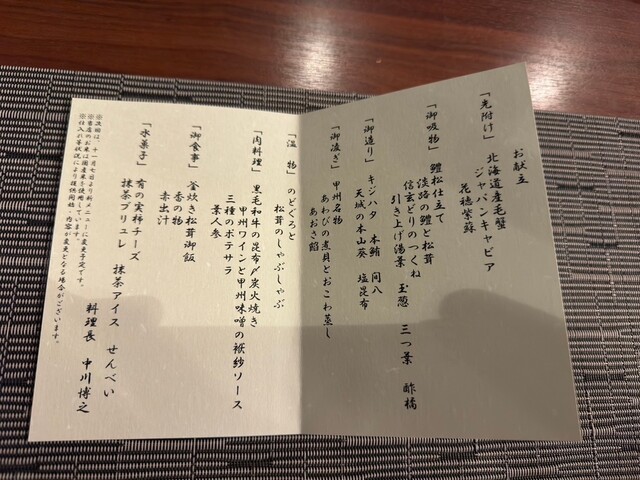 お献立
「先附け」 北海道産毛蟹
ジャパンキャビア
花穂紫蘇
「御吸物」 鱧松仕立て
淡路の鱧と松茸
信玄どりのつくね
引き上げ湯葉 玉葱 三つ葉 酢橘
「御造り」 キジハタ 本鮪 間八
天城の本山葵 塩昆布
「御凌ぎ」 甲州名物
あわびの煮貝とおこわ蒸し
あおさ餡
「温物」 のどぐろと
松茸のしゃぶしゃぶ
「肉料理」 黒毛和牛の昆布〆炭火焼き
甲州ワインと甲州味噌の袱紗ソース
三種のポテサラ
葉人参
「御食事」 釜炊き松茸御飯
香の物
赤出汁
「水菓子」 有の実柿チーズ
抹茶ブリュレ 抹茶アイス せんべい
料理長 中川博之
※次回は、十一月七日より新メニューに変更予定です。
※当店のお米は国産米を使用しています。
※仕入れ等状況により提供同格、内容が変更となる場合がございます。